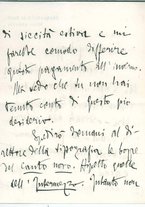 di siccità estiva e mi
farebbe comodo differire
questo pagamento all'
Ma vedo che tu non hai
tenuto conto di questo mio
desiderio.
domani al di-
rettore della tipografia le bozze
del Canto novo. Aspetto quelle
dell'Intermezzo. Intanto non